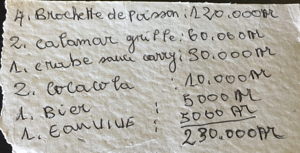 4. Brochette de poisson : 120.000Ar
2. calamar grillé : 60.000Ar
1. crabe sauce carry : 30.000Ar
2. cocacola : 10.000Ar
1. Bier : 5000 Ar
1. EAUVIVE : 5000 Ar
230.000Ar